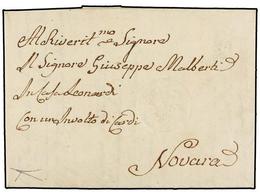 Al Riverit.mo Signore
Il Signore Giuseppe Malberti
In Casa Leonardi
Con un Involto di Cardi
Novara